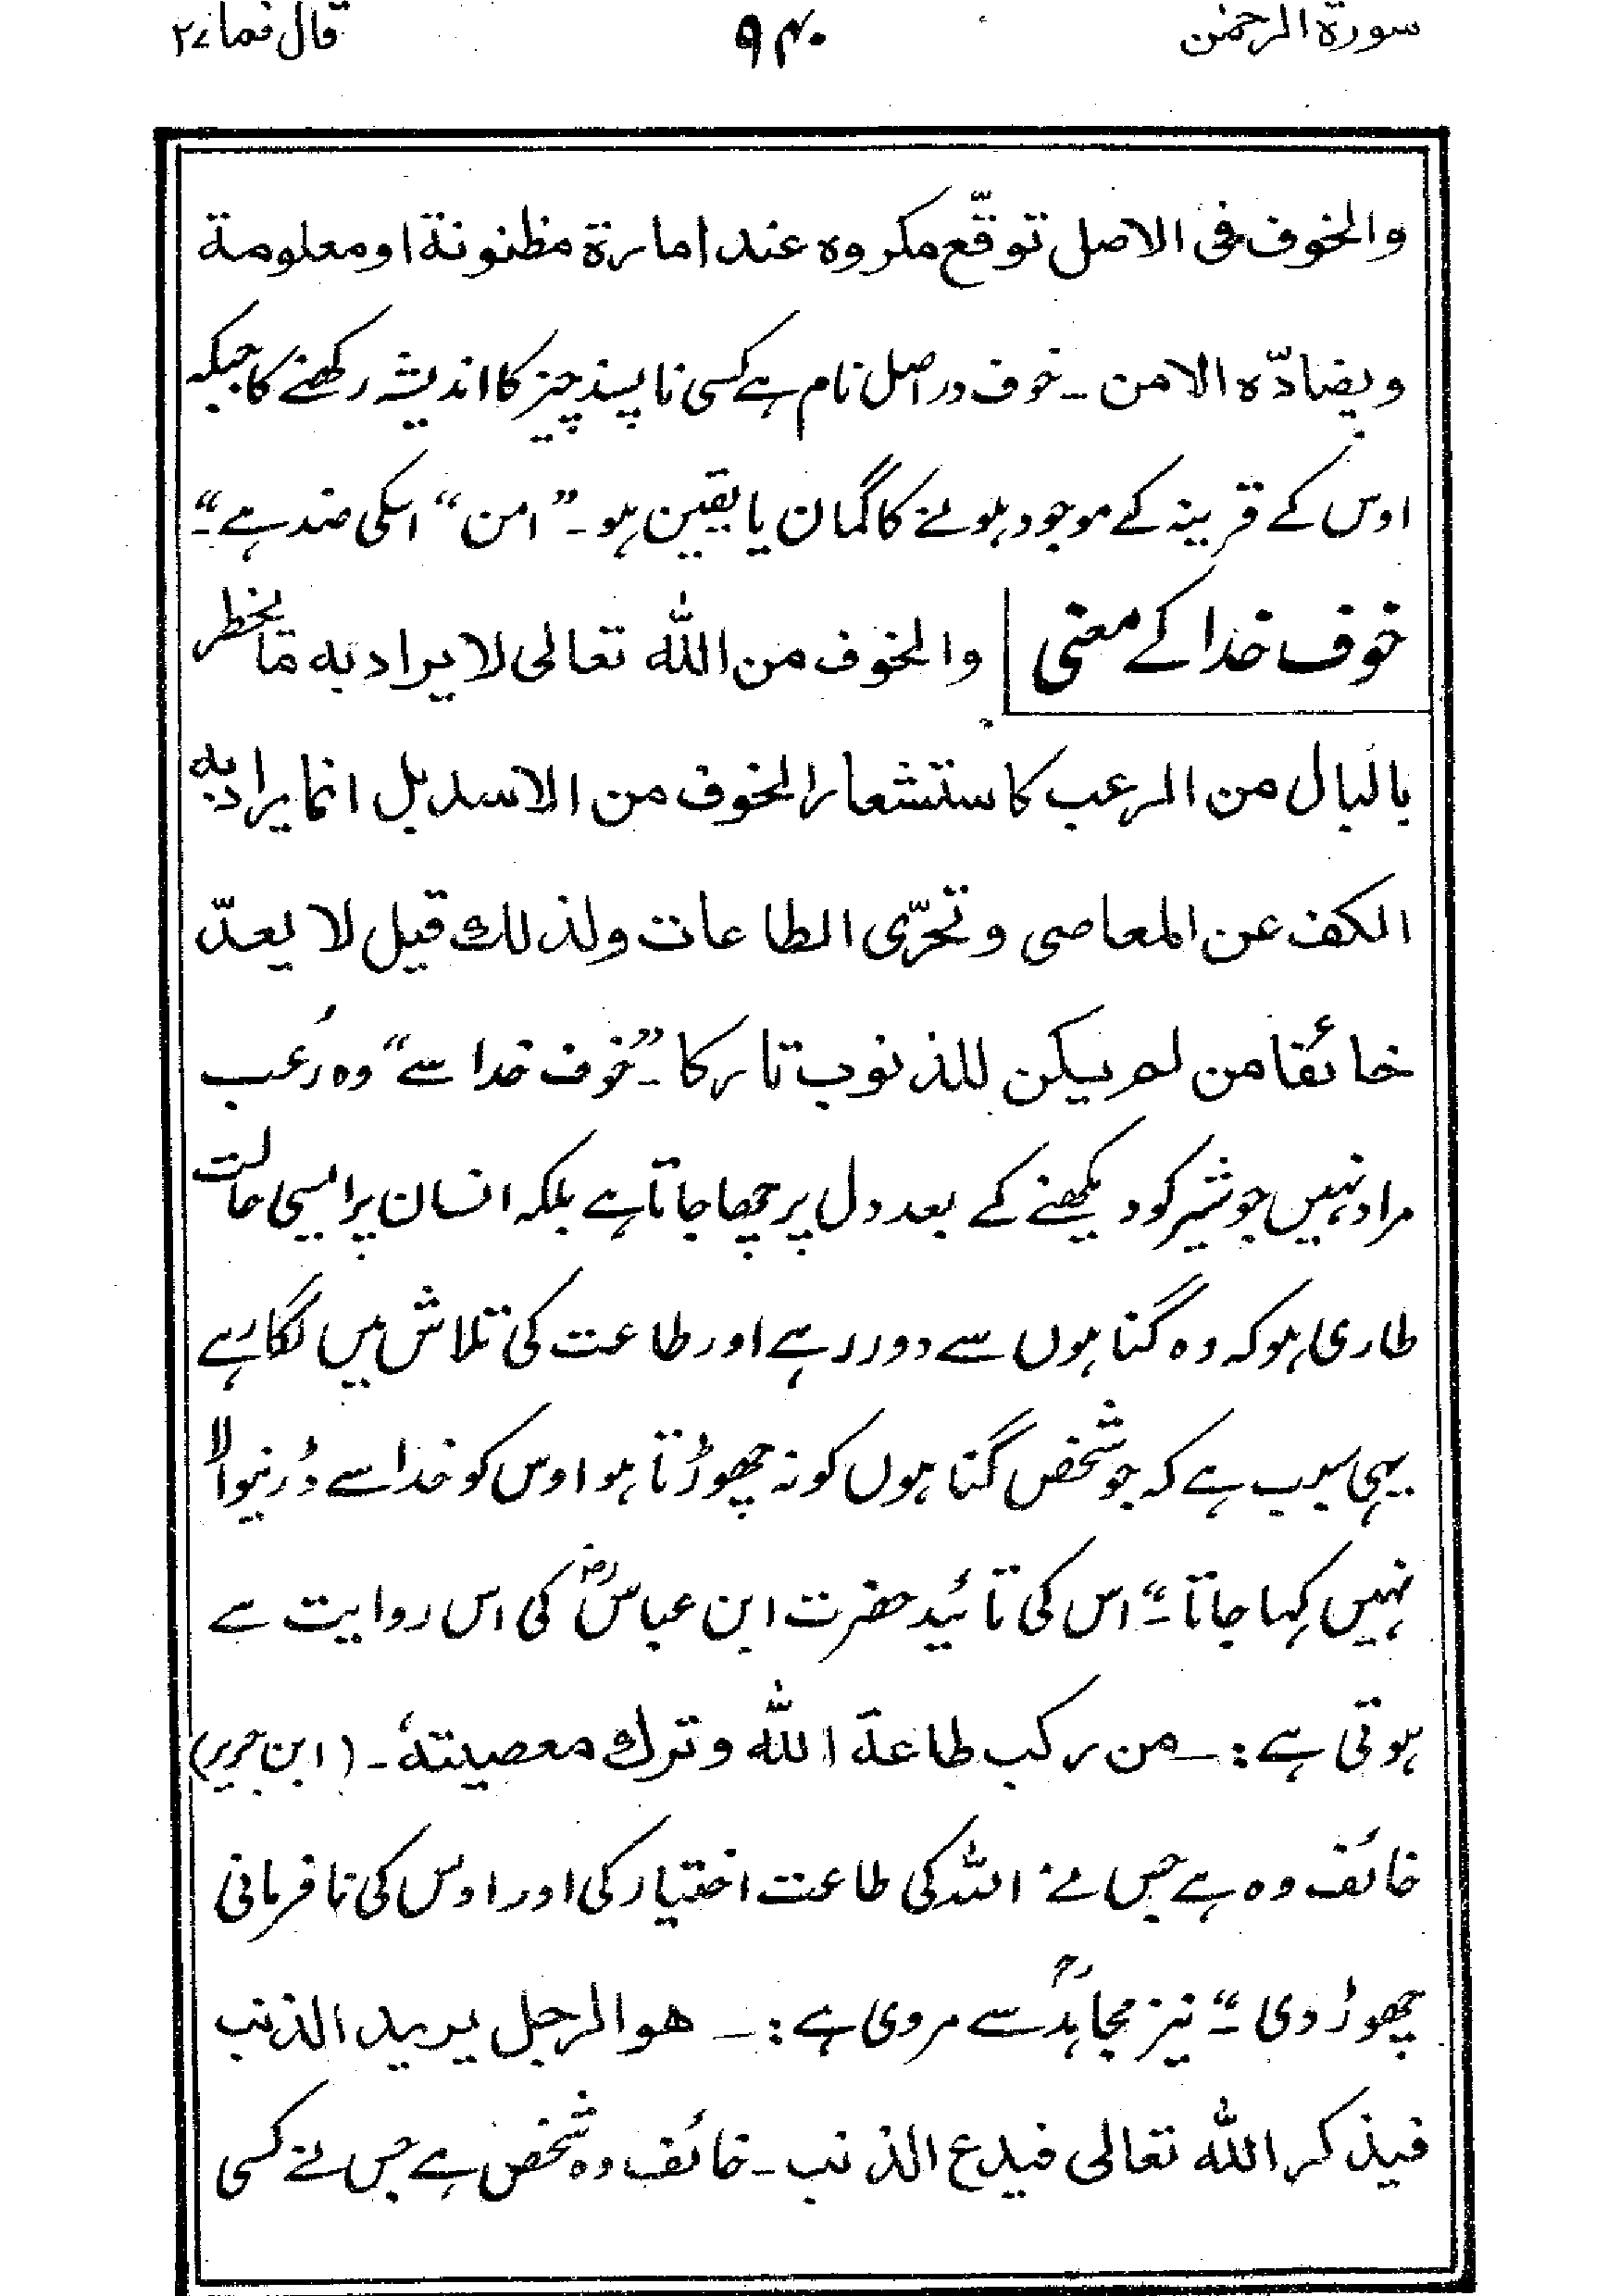 سورة الرحمٰن ۹۴۰ قال فما ۲۷
والخوف فی الاصل توقّع مکروہ عند امارة مظنونة او معلومة
ویضادّہ الامن ۔ خوف در اصل نام ہے کسی ناپسند چیز کا اندیشہ رکھنے کا جبکہ
اوس کے قرینہ کے موجود ہونے کا گمان یا یقین ہو۔ ”امن“ اسکی ضد ہے“۔
خوف خدا کے معنی والخوف من اللہ تعالی لا یراد به ما یخطر
بالبال من الرعب کاستشعار الخوف من الاسد بل انما یراد به
الکف عن المعاصی و تحرّی الطاعات ولذلك قیل لا یعدّ
خائفا من لم یکن للذنوب تارکا ۔ ”خوف خدا سے“ وہ رُعب
مراد نہیں جو شیر کو دیکھنے کے بعد دل پر چھا جاتا ہے بلکہ انسان پر ایسی حالت
طاری ہو کہ وہ گناہوں سے دور رہے اور طاعت کی تلاش میں لگا رہے
یہی سبب ہے کہ جو شخص گناہوں کو نہ چھوڑتا ہو اوس کو خدا سے ڈرنیوالا
نہیں کہا جاتا“۔ اس کی تائید حضرت ابن عباسؓ کی اس روایت سے
ہوتی ہے :ـ من رکب طاعة اللہ و ترك معصیتهٗ ۔ (ابن جریر)
خائف وہ ہے جس نے اللہ کی طاعت اختیار کی اور اوس کی نافرمانی
چھوڑ دی“۔ نیز مجاہدؒ سے مروی ہے :ـ هو الرجل یرید الذنب
فیذکر اللہ تعالی فیدع الذنب ۔ خائف وہ شخص ہے جس نے کسی